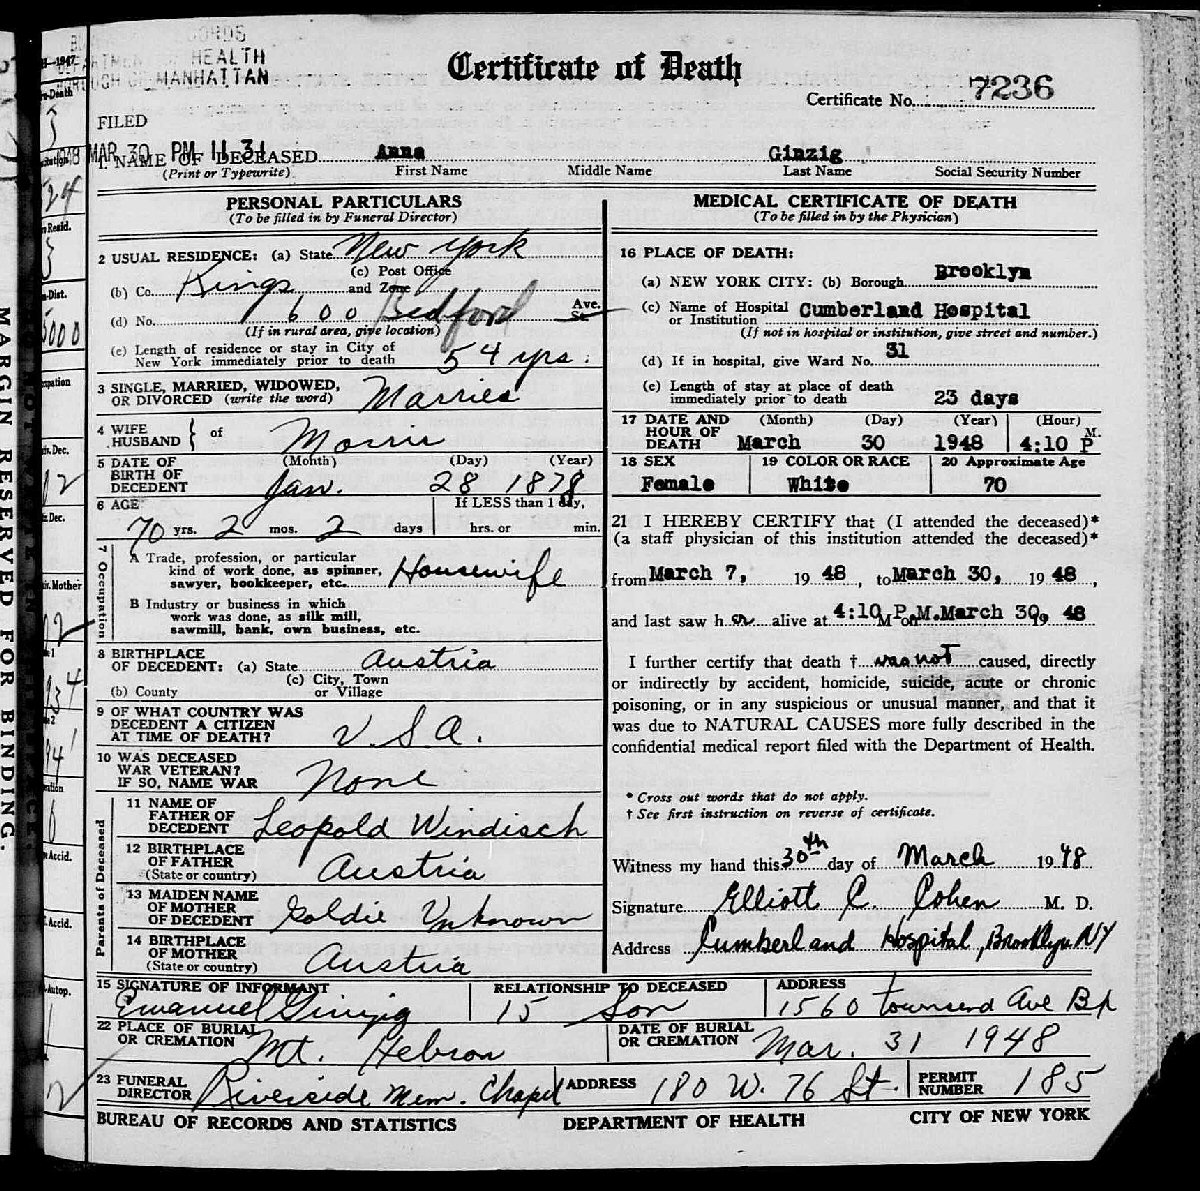 DEPARTMENT OF HEALTH
BOROUGH OF MANHATTAN
Certificate of Death
Certificate No. 7236
FILED
1948 MAR 30 PM 11 31
1. NAME OF DECEASED Anna Ginzig
(Print or Typewrite) First Name Middle Name Last Name Social Security Number
PERSONAL PARTICULARS
(To be filled in by Funeral Director)
2 USUAL RESIDENCE: (a) State New York
(c) Post Office
(b) Co. Kings and Zone
(d) No. 600 Bedford Ave. St.
(If in rural area, give location)
(e) Length of residence or stay in City of
New York immediately prior to death 54 yrs.
3 SINGLE, MARRIED, WIDOWED,
OR DIVORCED (write the word) Married
4 WIFE
HUSBAND } of Morris
5 DATE OF (Month) (Day) (Year)
BIRTH OF
DECEDENT Jan. 28 1878
6 AGE If LESS than 1 day,
70 yrs. 2 mos. 2 days hrs. or min.
7 Occupation
A Trade, profession, or particular
kind of work done, as spinner,
sawyer, bookkeeper, etc. Housewife
B Industry or business in which
work was done, as silk mill,
sawmill, bank, own business, etc.
8 BIRTHPLACE
OF DECEDENT: (a) State Austria
(c) City, Town
(b) County or Village
9 OF WHAT COUNTRY WAS
DECEDENT A CITIZEN
AT TIME OF DEATH? U.S.A.
10 WAS DECEASED
WAR VETERAN?
IF SO, NAME WAR None
Parents of Deceased
11 NAME OF
FATHER OF
DECEDENT Leopold Windisch
12 BIRTHPLACE
OF FATHER
(State or country) Austria
13 MAIDEN NAME
OF MOTHER
OF DECEDENT Goldie Unknown
14 BIRTHPLACE
OF MOTHER
(State or country) Austria
MEDICAL CERTIFICATE OF DEATH
(To be filled in by the Physician)
16 PLACE OF DEATH:
(a) NEW YORK CITY: (b) Borough Brooklyn
(c) Name of Hospital
or Institution Cumberland Hospital
(If not in hospital or institution, give street and number.)
(d) If in hospital, give Ward No. 31
(e) Length of stay at place of death
immediately prior to death 23 days
17 DATE AND (Month) (Day) (Year) (Hour)
HOUR OF
DEATH March 30 1948 4:10 P M.
18 SEX 19 COLOR OR RACE 20 Approximate Age
Female White 70
21 I HEREBY CERTIFY that (I attended the deceased)*
(a staff physician of this institution attended the deceased)*
from March 7, 1948, to March 30, 1948,
and last saw her alive at 4:10 P.M. M on March 30, 1948
I further certify that death † was not caused, directly
or indirectly by accident, homicide, suicide, acute or chronic
poisoning, or in any suspicious or unusual manner, and that it
was due to NATURAL CAUSES more fully described in the
confidential medical report filed with the Department of Health.
* Cross out words that do not apply.
† See first instruction on reverse of certificate.
Witness my hand this 30th day of March 1948
Signature Elliott C. Cohen M. D.
Address Cumberland Hospital, Brooklyn NY
15 SIGNATURE OF INFORMANT RELATIONSHIP TO DECEASED ADDRESS
Emanuel Ginzig 15 Son 1560 Townsend Ave Bx
22 PLACE OF BURIAL
OR CREMATION Mt. Hebron
DATE OF BURIAL
OR CREMATION Mar. 31 1948
23 FUNERAL
DIRECTOR Riverside Mem. Chapel
ADDRESS 180 W. 76 St.
PERMIT
NUMBER 185
BUREAU OF RECORDS AND STATISTICS DEPARTMENT OF HEALTH CITY OF NEW YORK
MARGIN RESERVED FOR BINDING.